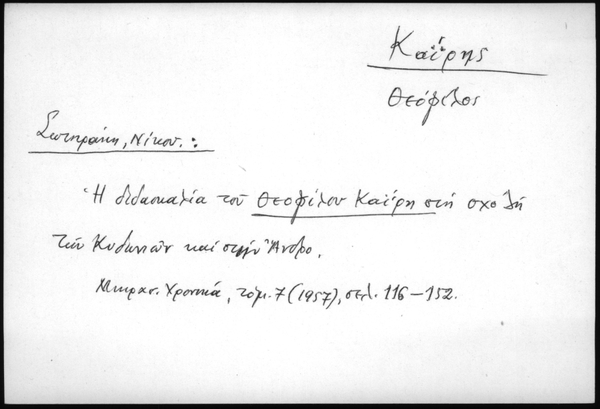 Καΐρης
Θεόφιλος
Σωτηράκη, Νίκου. :
Ἡ διδασκαλία τοῦ Θεοφίλου Καΐρη στή σχολή
τῶν Κυδωνιῶν καί στήν Ἄνδρο.
Μικρασ. Χρονικά, τόμ. 7 (1957), σελ. 116-152.